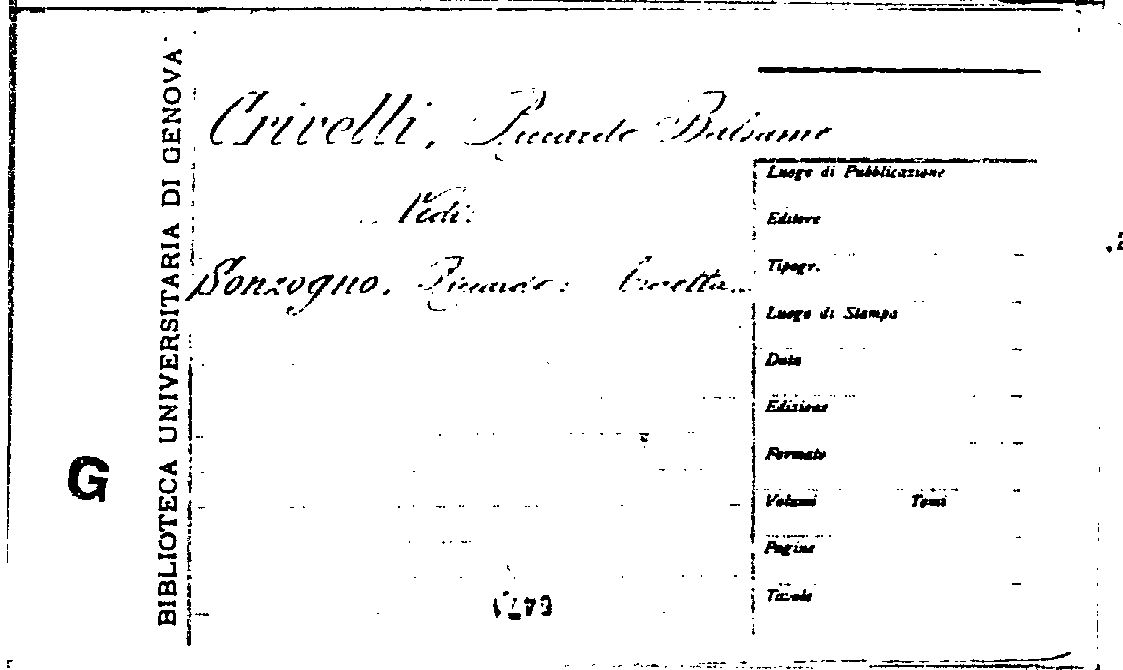 BIBLIOTECA UNIVERSITARIA DI GENOVA
G
Crivelli, Riccardo Balsamo
Vedi:
Sonzogno, Riccardo:
Luogo di Pubblicazione
Editore
Tipogr.
Luogo di Stampa
Data
Edizione
Formato
Volumi Tomi
Pagine
Tavole